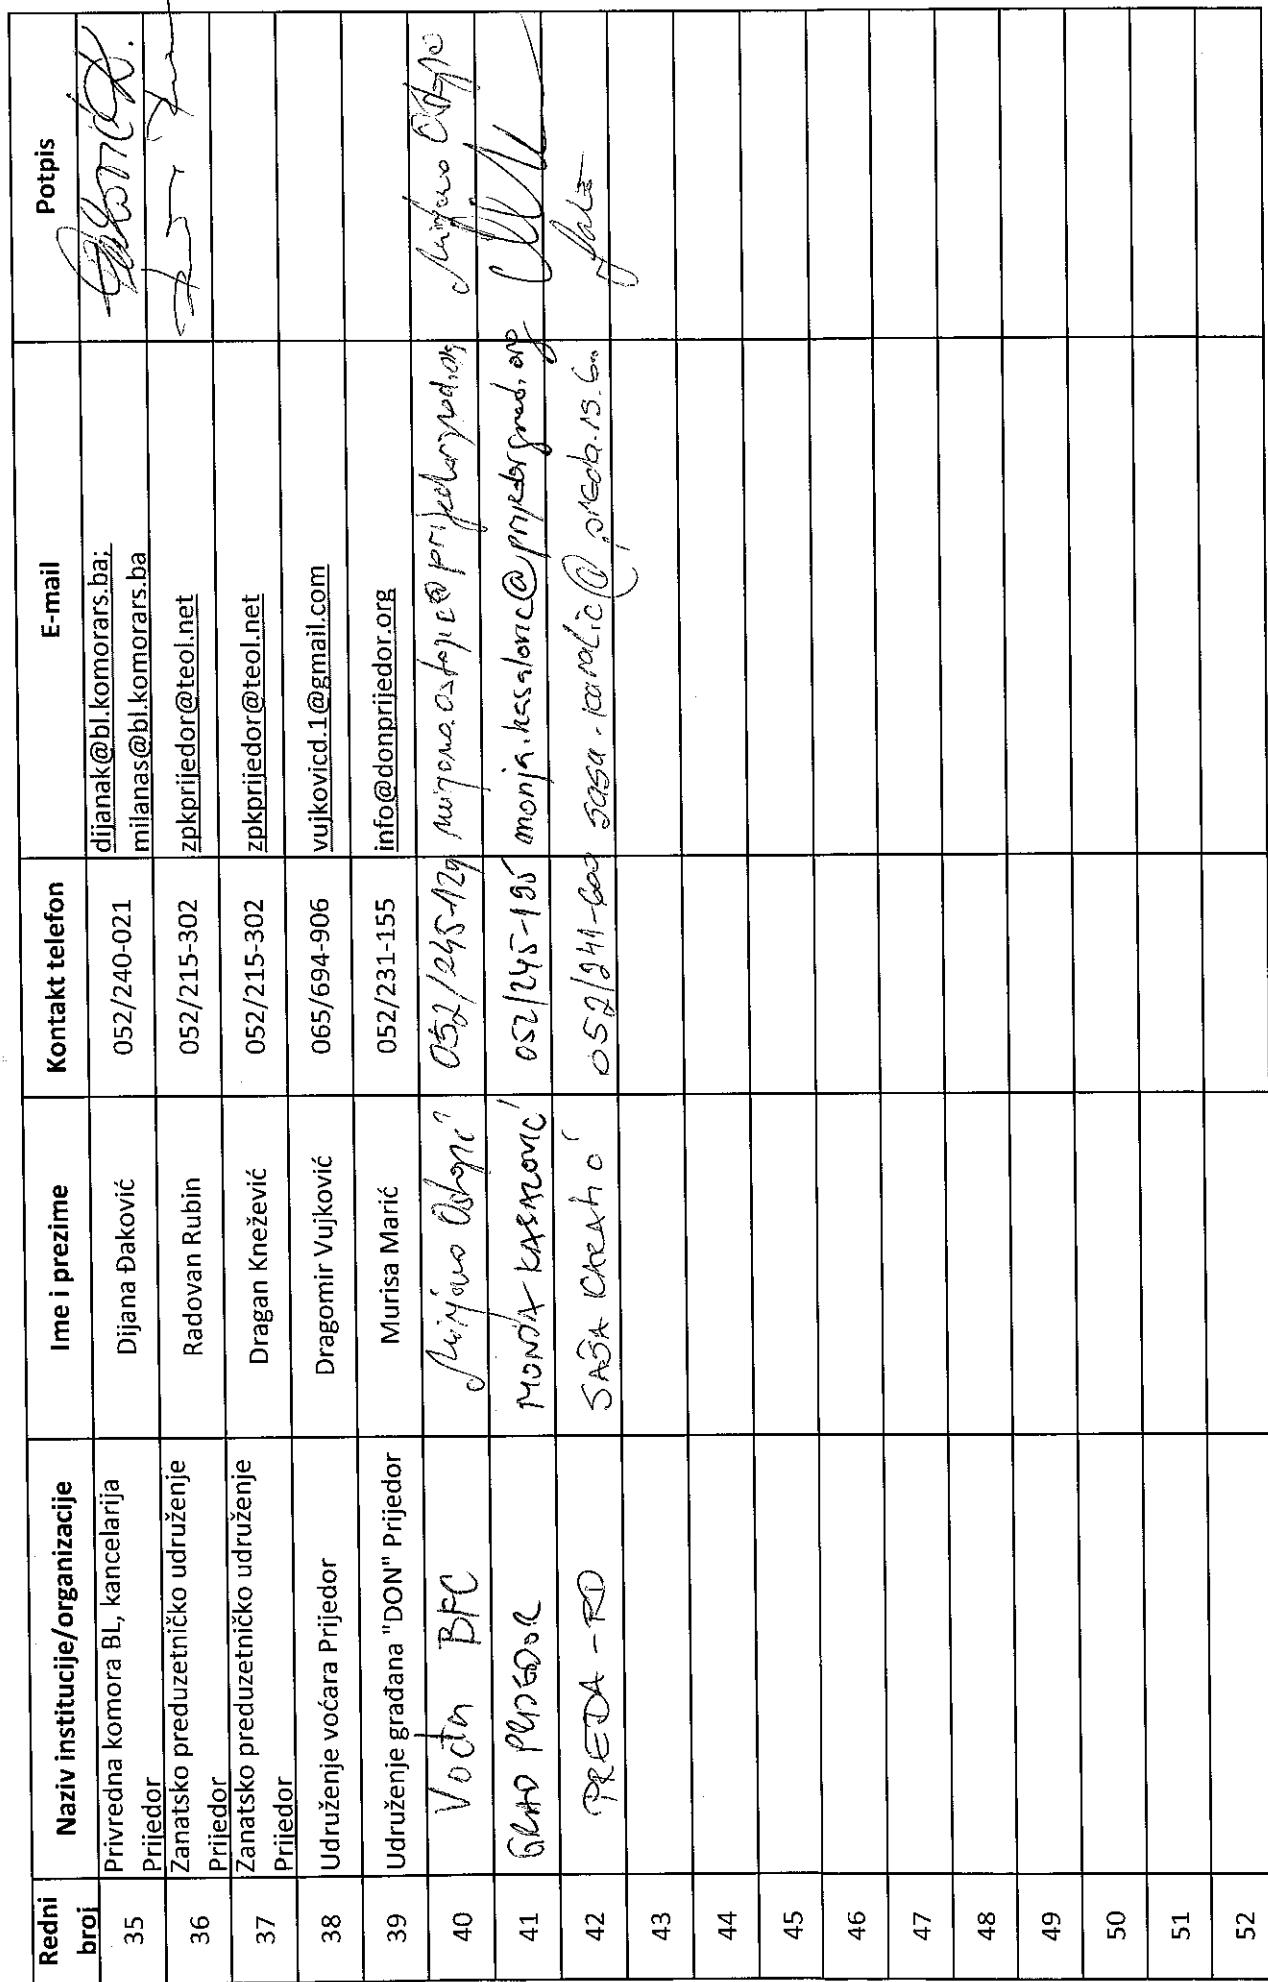 Redni broj Naziv institucije/organizacije Ime i prezime Kontakt telefon E-mail Potpis
35 Privredna komora BL, kancelarija Prijedor Dijana Đaković 052/240-021 dijanak@bl.komorars.ba; milanas@bl.komorars.ba
36 Zanatsko preduzetničko udruženje Prijedor Radovan Rubin 052/215-302 zpkprijedor@teol.net
37 Zanatsko preduzetničko udruženje Prijedor Dragan Knežević 052/215-302 zpkprijedor@teol.net
38 Udruženje voćara Prijedor Dragomir Vujković 065/694-906 vujkovicd.1@gmail.com
39 Udruženje građana "DON" Prijedor Murisa Marić 052/231-155 info@donprijedor.org
40 BFC 052/245-129
41 GRAD PRIJEDOR 052/245-195
42 PREDA-RD SAŠA 052/241-600
43
44
45
46
47
48
49
50
51
52